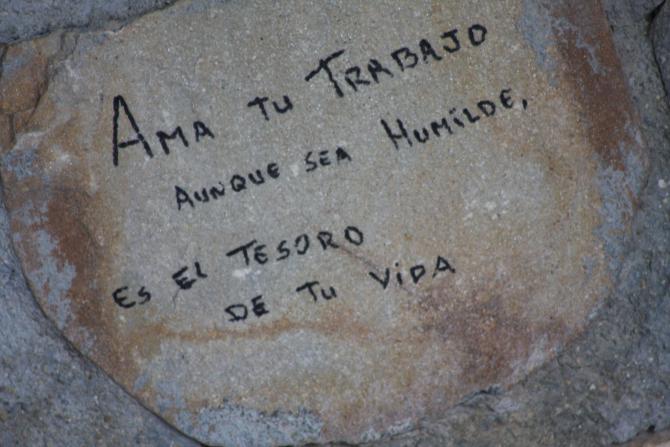 AMA TU TRABAJO
AUNQUE SEA HUMILDE,
ES EL TESORO
DE TU VIDA